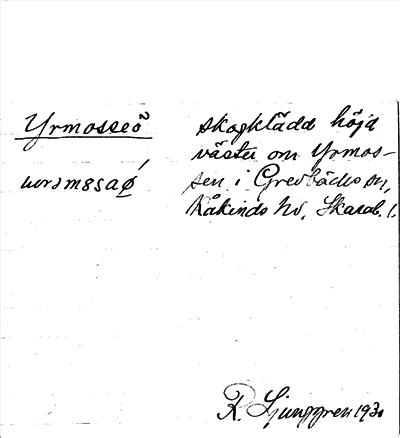 Yrmosseö
skogklädd höjd
väster om Yrmos-
sen i Grevbäcks sn,
Kåkinds hd, Skarab. l.
R. Ljunggren 1930